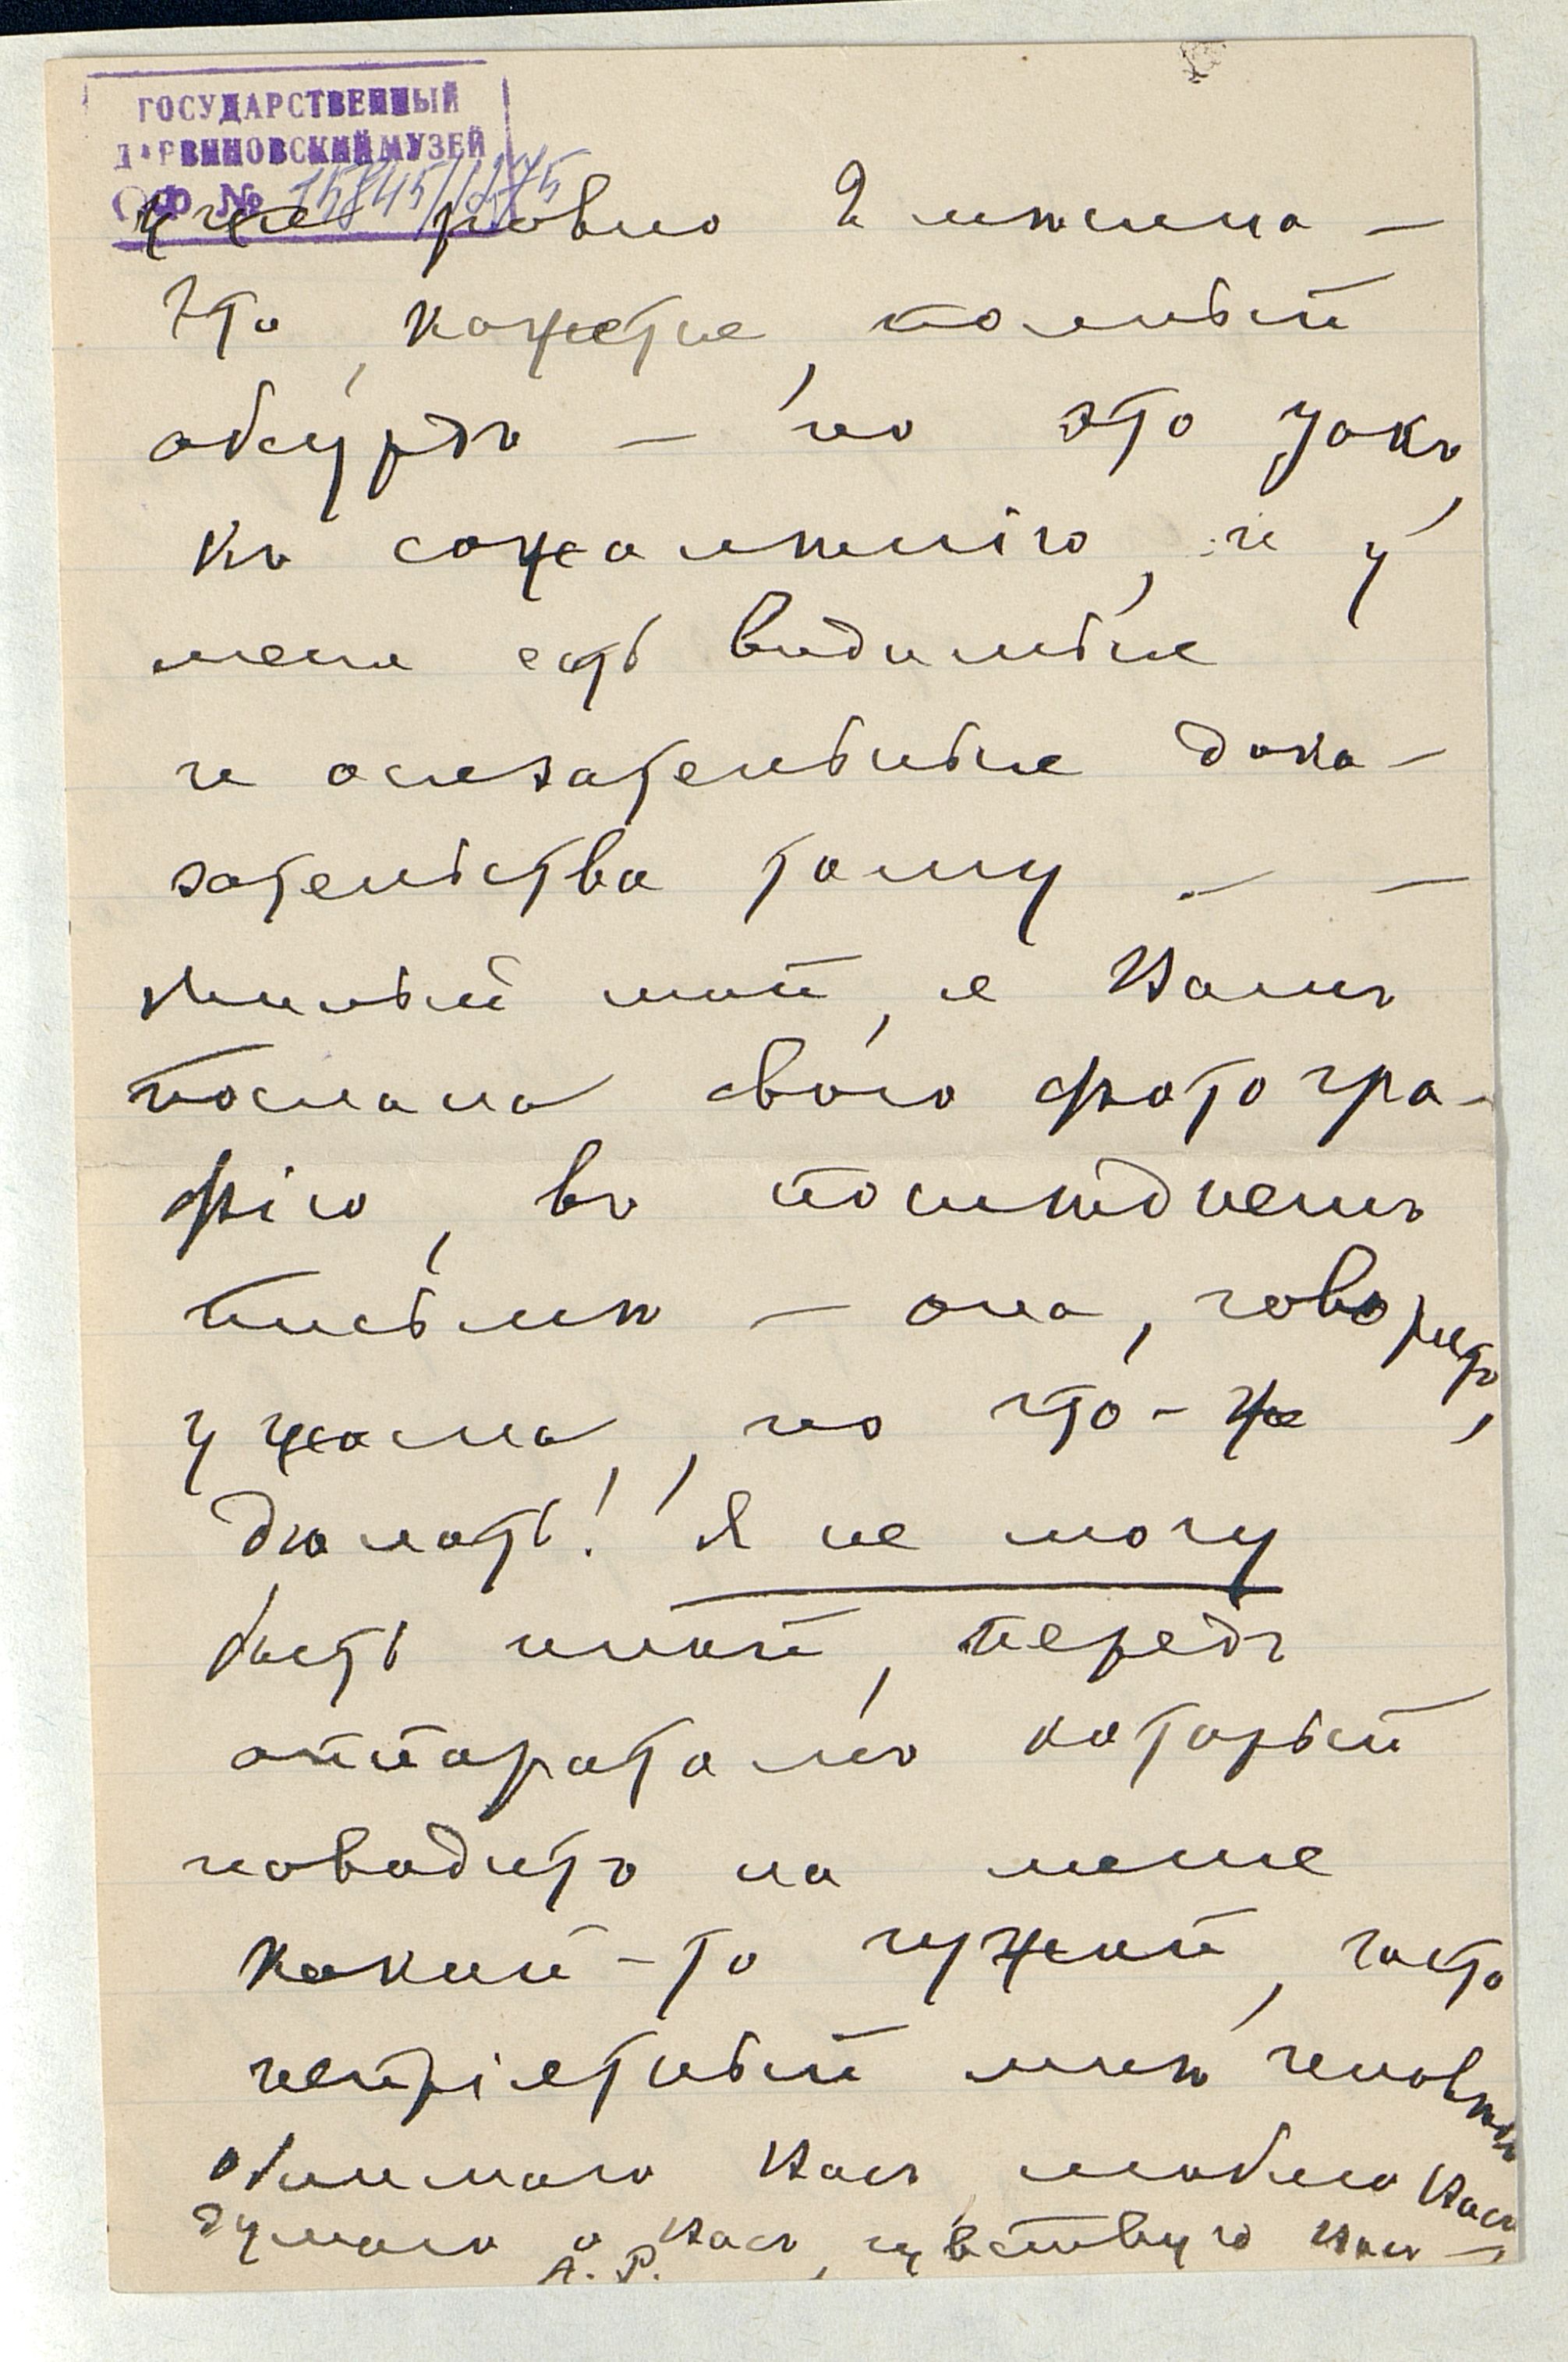 ГОСУДАРСТВЕННЫЙ
ДАРВИНОВСКИЙ МУЗЕЙ
ОФ № 15845/1275
уже ровно 2 мѣсяца —
Это, кажется, полный
абсурдъ — но это такъ,
къ сожалѣнію, и у
меня есть видимые
и осязательные дока-
зательства тому — —
Милый мой, я Вамъ
послала свою фотогра-
фію, въ послѣднемъ
письмѣ — она, говорятъ,
ужасна, но что-же
дѣлать! Я не могу
быть иной, передъ
аппаратомъ который
наводитъ на меня
какой-то чужой, часто
непріятный мнѣ человѣкъ
Обнимаю Васъ люблю Васъ
думаю о Васъ, чувствую Васъ —
А. Р.